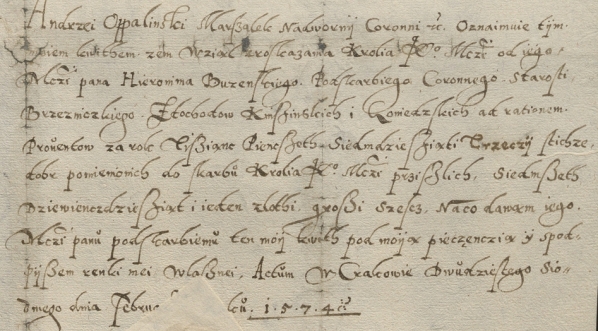 Andrzei Oppalinski Marszalek Nadwornij Coronni etc. Oznaimuie tijm
moiem kwithem zem wzial zroskazania Krolia Je° Mczi od iego
Mczi pana Hieronima Buzenskiego Podskarbiego Coronnego Starosti
Brzeznickiego Zlochodow Knissinskich i Goniedzskich ad rationem
Prouentow za rok Tissianc Piencseth Siedmdziesziąti Trzeczij stichze
dobr pomienionich do skarbu Krolia Je° Mczi przislich, Siedmseth
Dziewienczdziesziąt i ieden zlothi, groshi szescz, Naco dawam iego
Mczi panu podskarbiemu ten moij kwith pod moiją pieczenczią ij spod
pijsem renki mei wlasnei, Actum W Cracowie Dwudziestego Sio
dmego dnia Febru 1.5.7.4